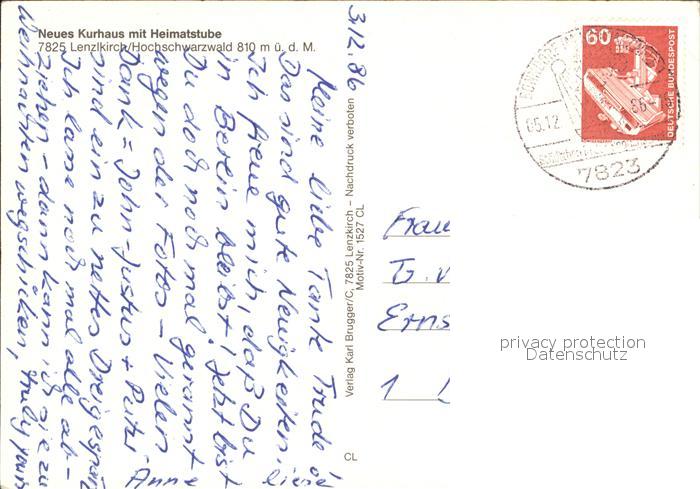 Neues Kurhaus mit Heimatstube
7825 Lenzkirch/Hochschwarzwald 810 m ü. d. M.
3/12.86
Meine liebe Tante Trude
Das sind gute Neuigkeiten,
ich freue mich, daß Du
in Berlin bleibst! Jetzt bist
Du doch noch mal gerannt
wegen der Fotos – Vielen
Dank = John-Justus + Putzi
sind ein zu nettes Dreigespann
Ich lasse noch mal alle ab-
ziehen – dann kann ich sie zu
Weihnachten wegschicken, truly yours
Anne
Verlag Karl Brugger/C, 7825 Lenzkirch – Nachdruck verboten
Motiv-Nr. 1527 CL
CL
60
DEUTSCHE BUNDESPOST
05.12
86-
7823
Frau
G. v
Erns
1 L
privacy protection
Datenschutz